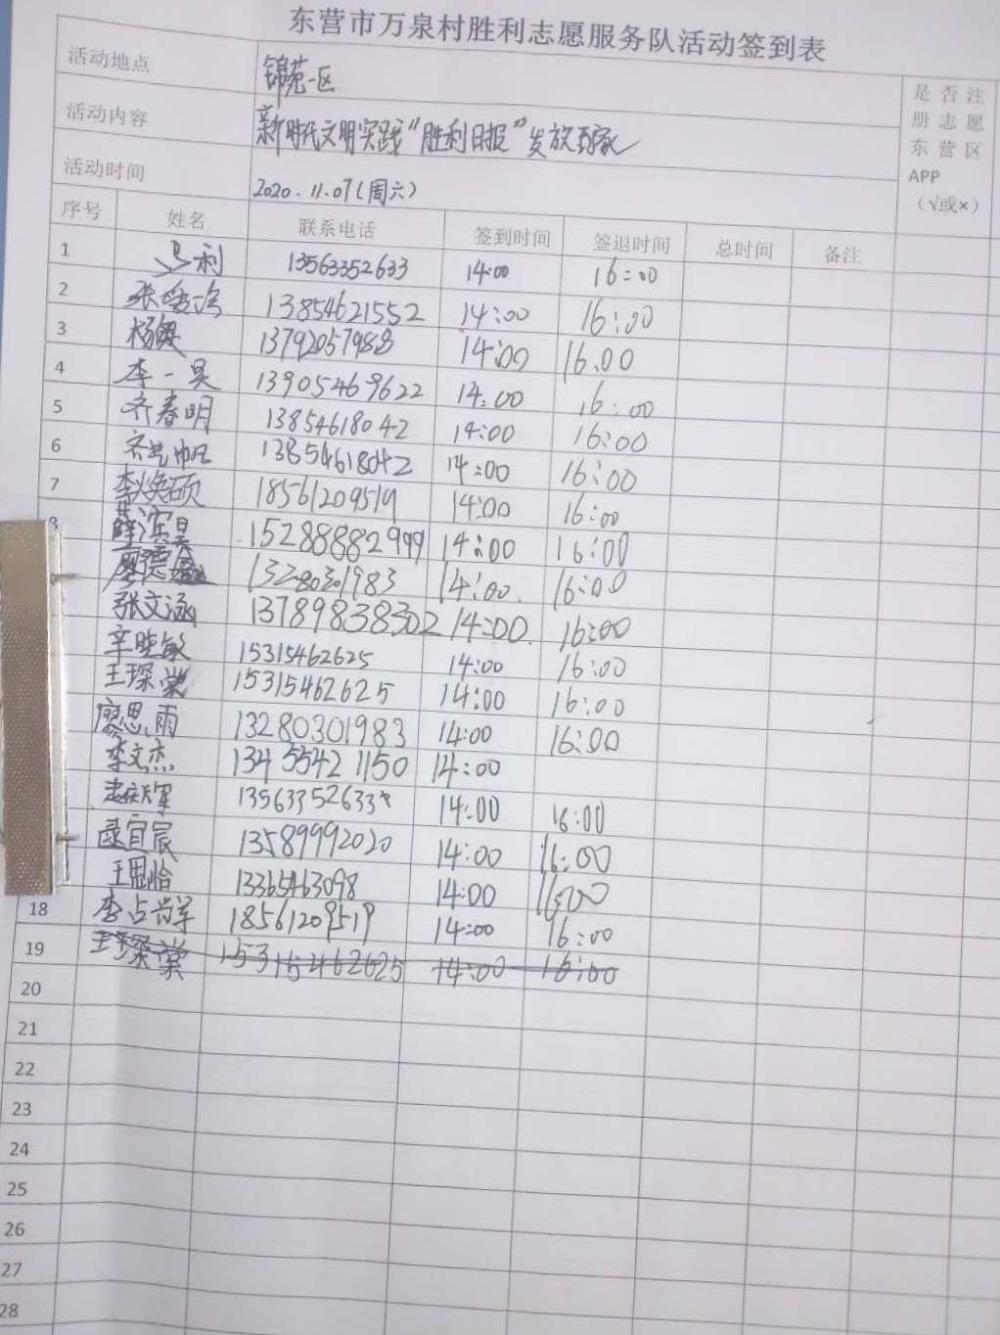 东营市万泉村胜利志愿服务队活动签到表
活动地点 锦苑一区
活动内容 新时代文明实践“胜利日报”发放到家
活动时间 2020.11.07(周六)
是否注
册志愿
东营区
APP
(√或×)
序号 姓名 联系电话 签到时间 签退时间 总时间 备注
1 利 13563352633 14:00 16:00
2 张 13854621552 14:00 16:00
3 杨 13792057988 14:00 16.00
4 李一昊 13905469622 14:00 16:00
5 齐春明 13854618042 14:00 16:00
6 齐 帆 13854618042 14:00 16:00
7 李焕硕 18561209519 14:00 16:00
8 薛滨昊 15288882999 14:00 16:00
廖德 13280301983 14:00. 16:00
张文涵 13789838302 14:00. 16:00
辛晓敏 15315462625 14:00 16:00
王琛棠 15315462625 14:00 16:00
廖思雨 13280301983 14:00 16:00
李文杰 13455421150 14:00
13563352633 14:00 16:00
宜宸 13589992020 14:00 16:00
王思怡 13365463098 14:00 16:00
18 李占军 18561209519 14:00 16:00
19 王琛棠 15315462625 14:00 16:00
20
21
22
23
24
25
26
27
28